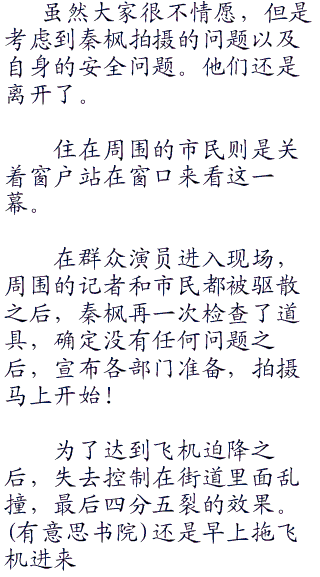 虽然大家很不情愿，但是
考虑到秦枫拍摄的问题以及
自身的安全问题。他们还是
离开了。
住在周围的市民则是关
着窗户站在窗口来看这一
幕。
在群众演员进入现场，
周围的记者和市民都被驱散
之后，秦枫再一次检查了道
具，确定没有任何问题之
后，宣布各部门准备，拍摄
马上开始！
为了达到飞机迫降之
后，失去控制在街道里面乱
撞，最后四分五裂的效果。
(有意思书院)还是早上拖飞
机进来